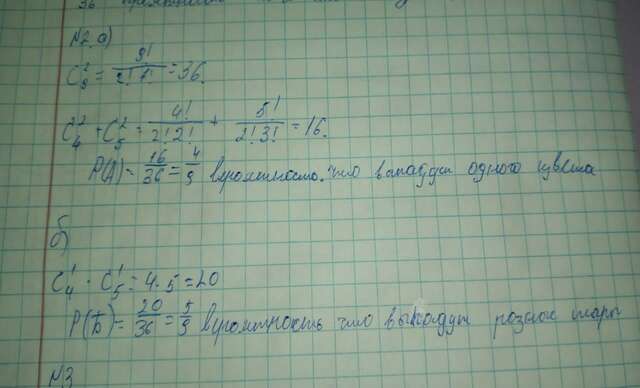 36
№2 а)
C₉² = 9! / 2! 7! = 36.
C₄² + C₅² = 4! / 2! 2! + 5! / 2! 3! = 16.
P(A) = 16/36 = 4/9 вероятность что выпадут одного цвета
б)
C₄¹ · C₅¹ = 4 · 5 = 20
P(Б) = 20/36 = 5/9 вероятность что выпадут разные шары
№3